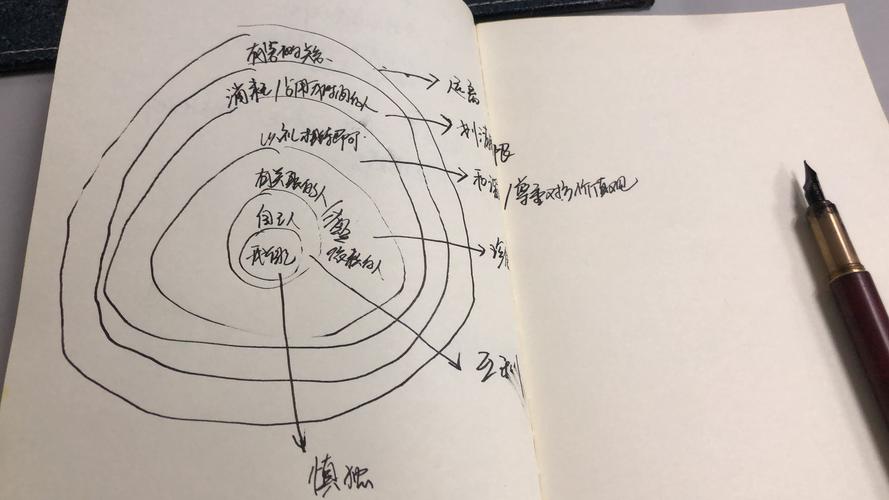 有害的关系
远离
消耗/占用我时间的人
划清界限
以礼相待即可
和谐/尊重对方价值观
有关联的人
自己人
我自己
互利
慎独